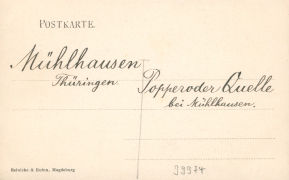 POSTKARTE.
Mühlhausen
Thüringen
Popperoder Quelle
bei Mühlhausen.
Reinicke & Rubin, Magdeburg
39974